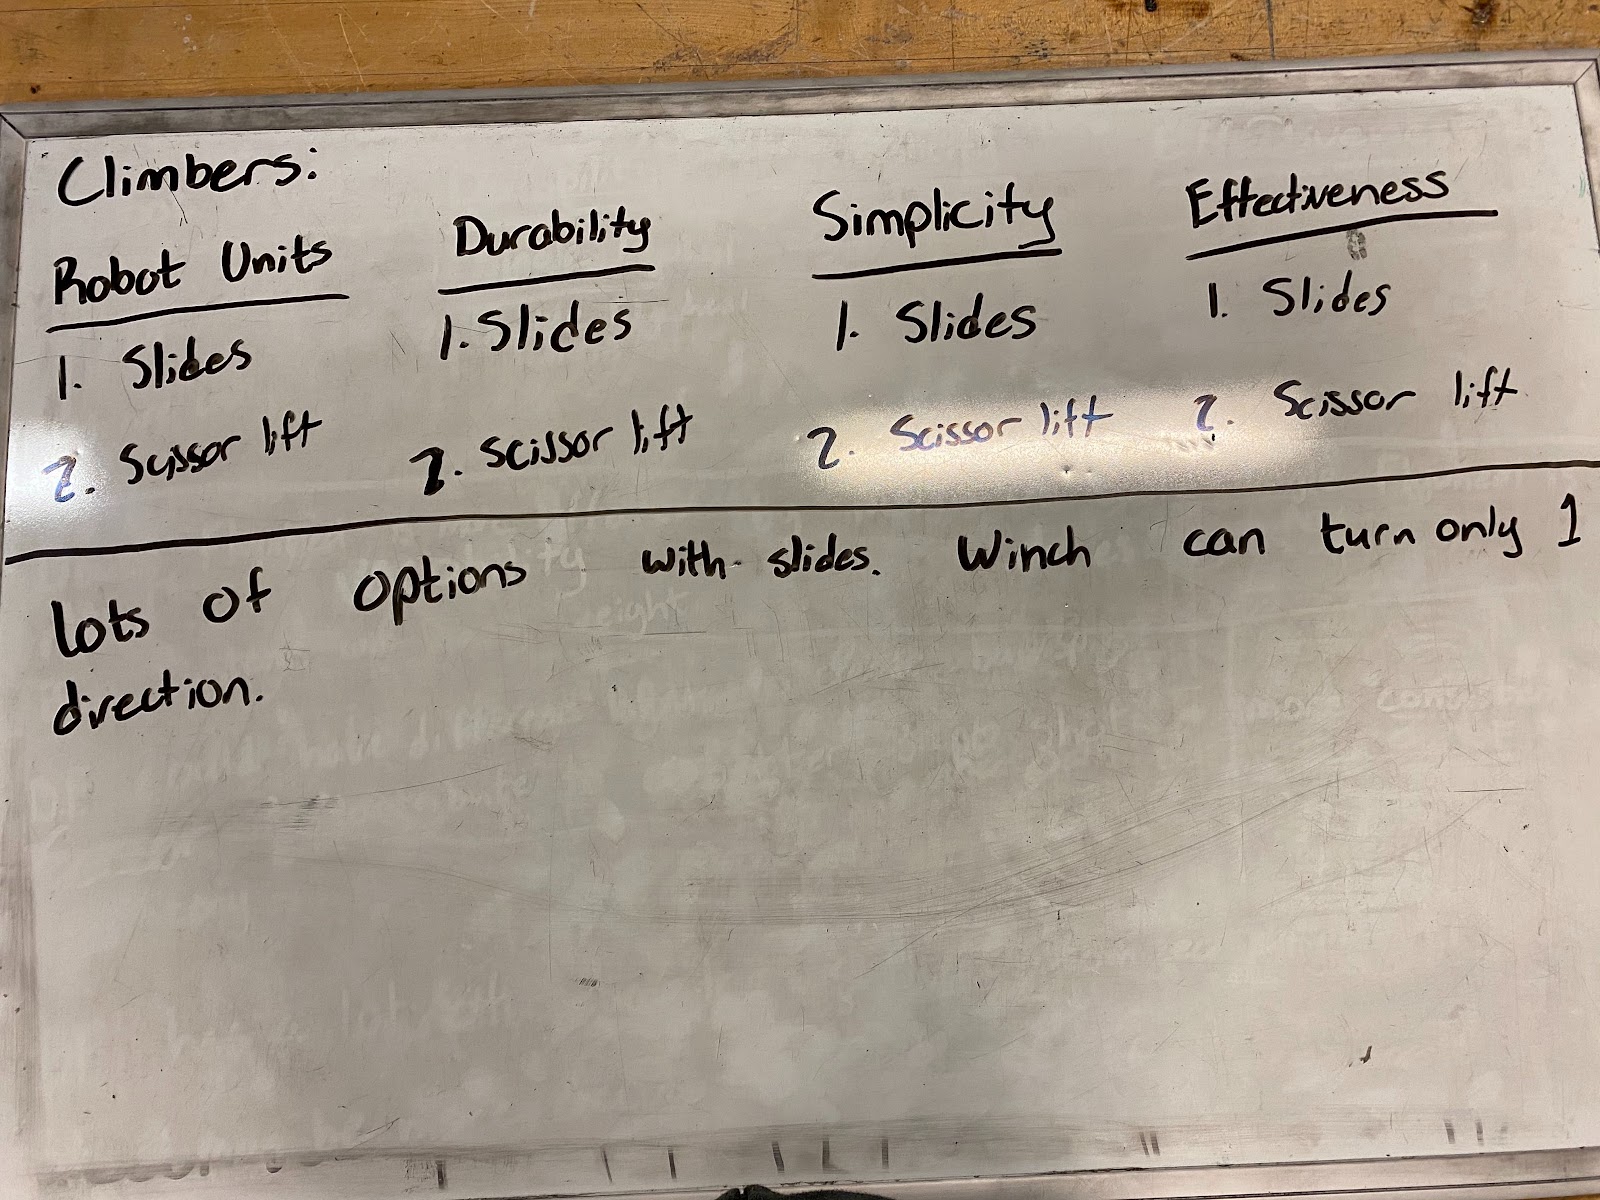 Climbers:
Robot Units Durability Simplicity Effectiveness
1. Slides 1. Slides 1. Slides 1. Slides
2. Scissor lift 2. Scissor lift 2. Scissor lift 2. Scissor lift
Lots of options with slides. Winch can turn only 1
direction.